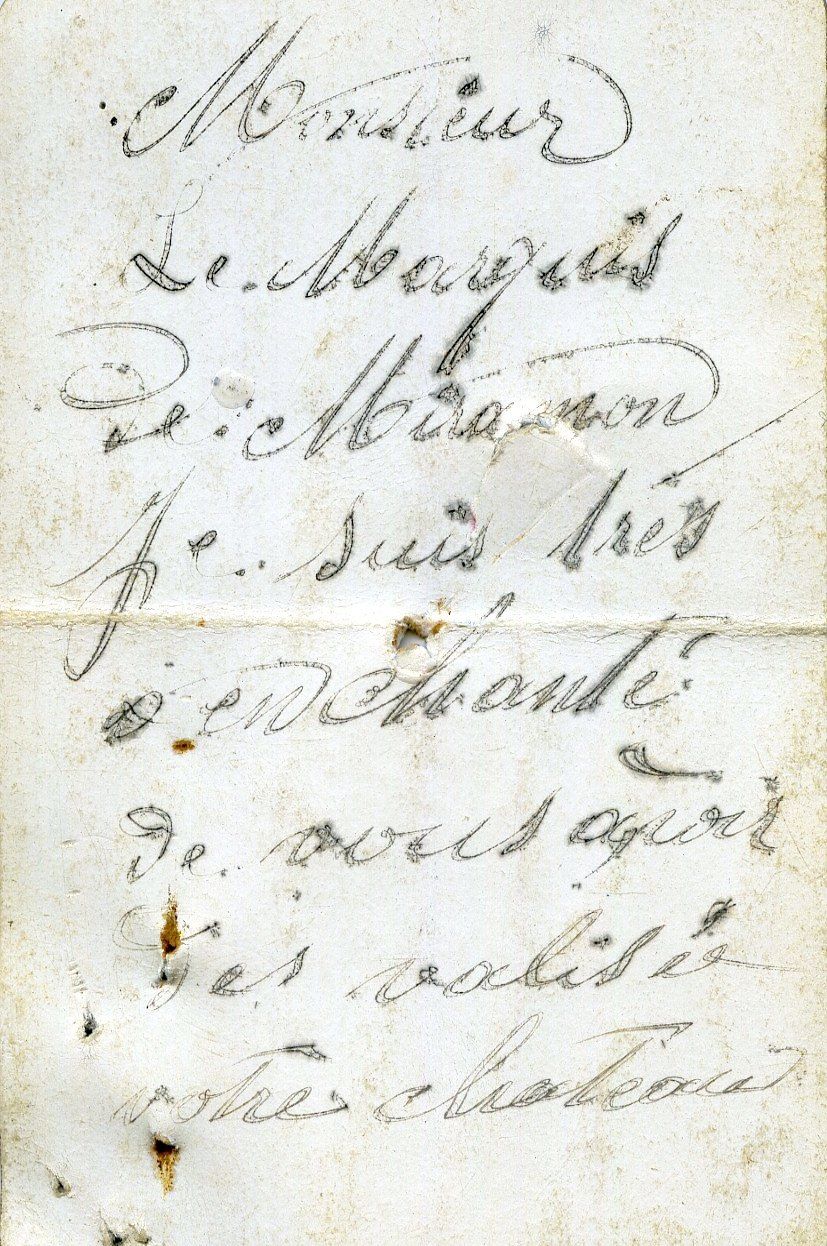 Monsieur
Le. Marquis
de: Miramon
Je. suis très
enchanté
de. vous avoir
devalisér
votre chateau